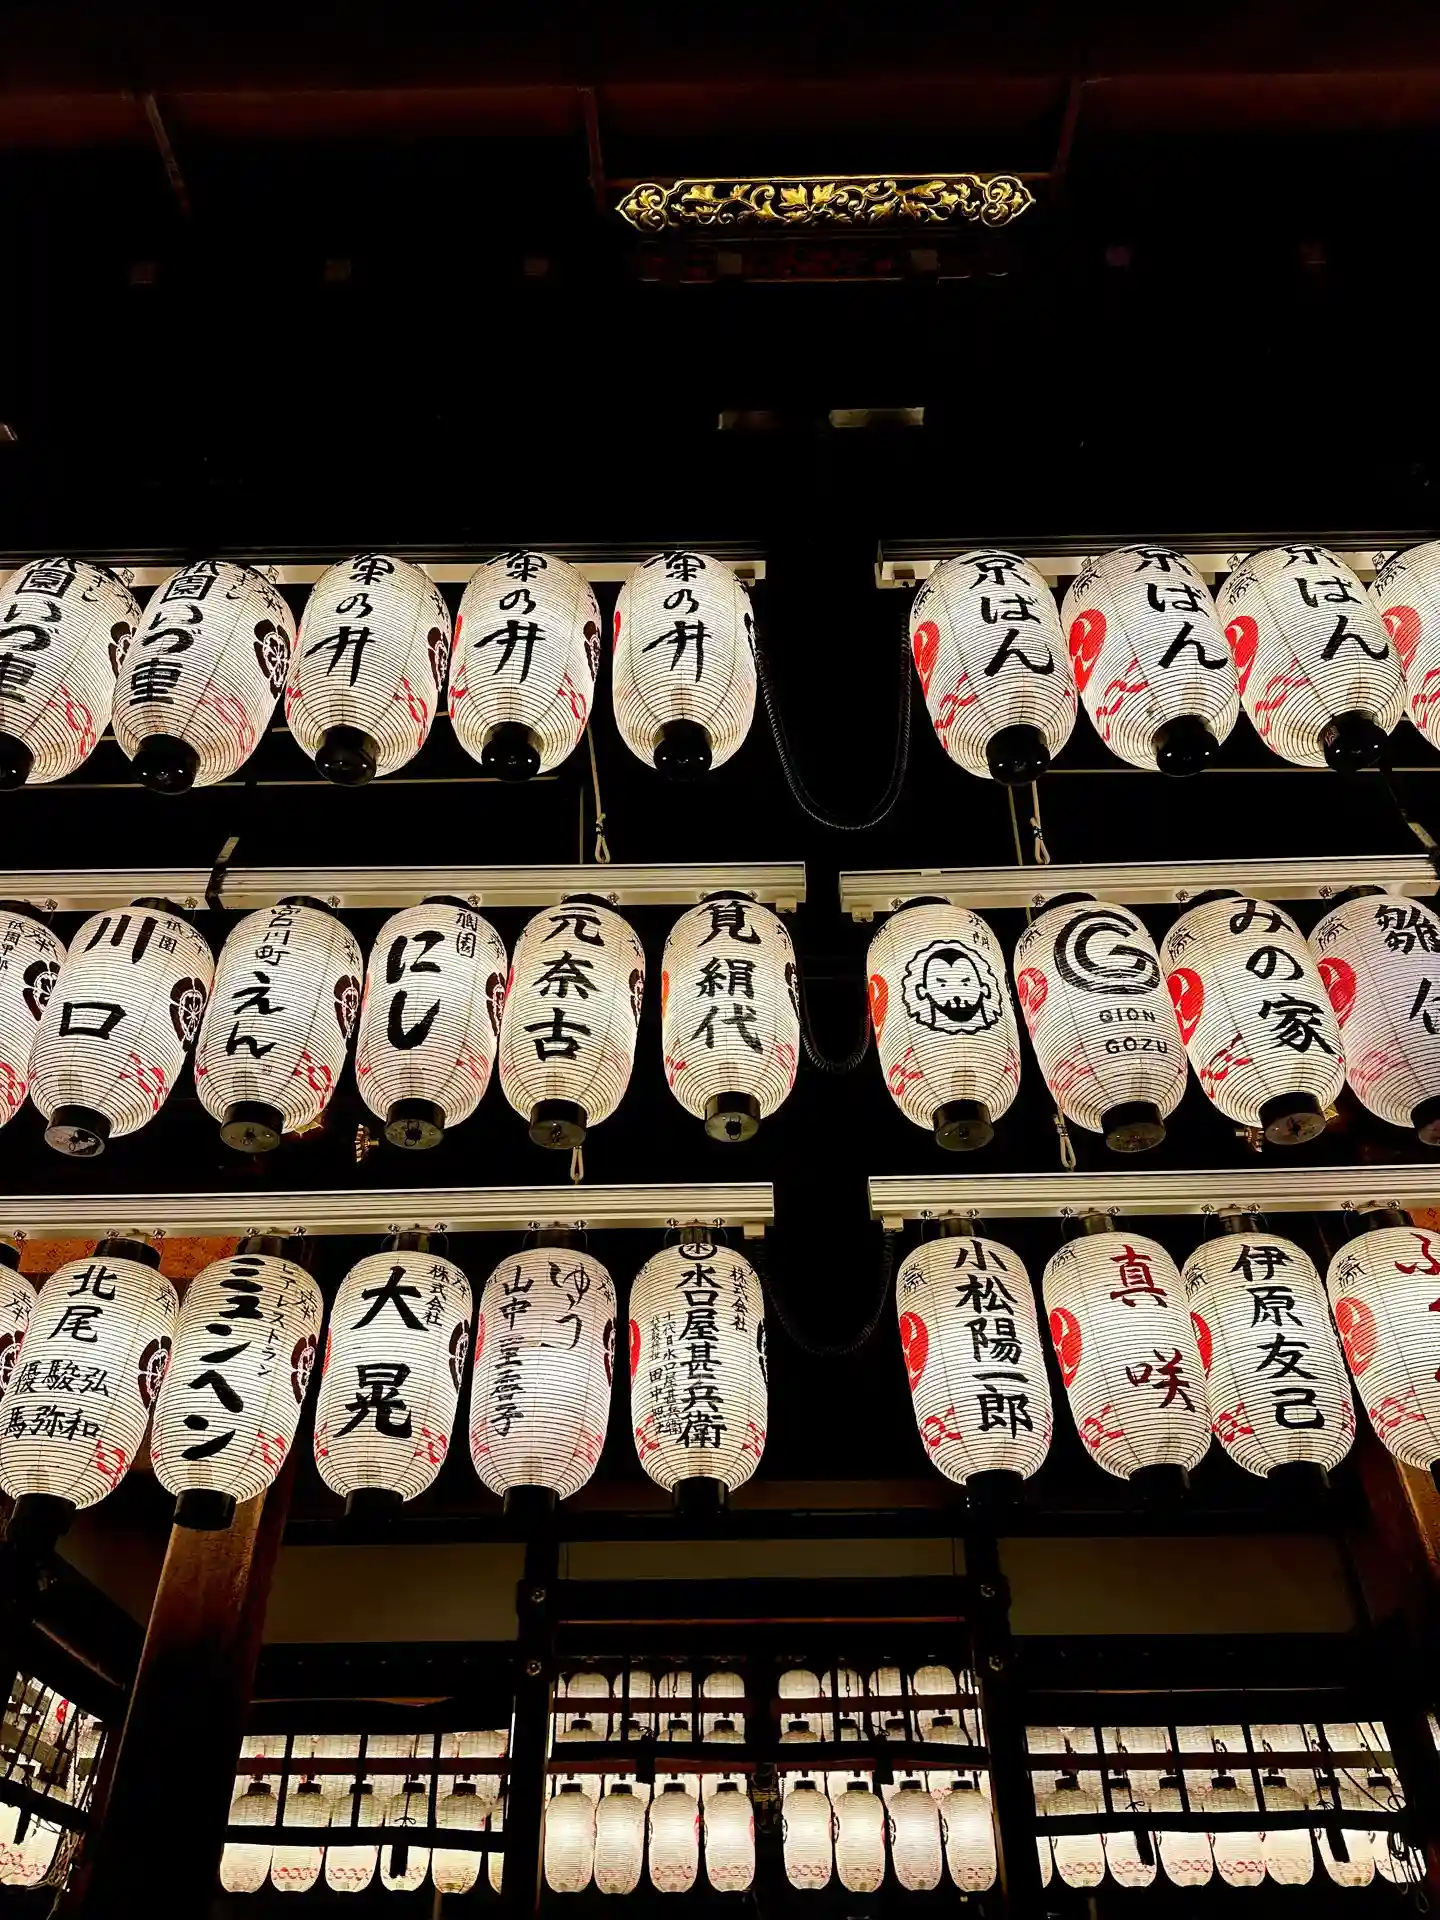 祇園いづ重
祇園いづ重
菊の井
菊の井
菊の井
京ばん
京ばん
京ばん
川口
祇園
宮川町
えん
にし
祇園
元奈古
筧絹代
GION
GOZU
みの家
雛
北尾
弘和
駿弥
優馬
レストラン
ミュンヘン
株式会社
大晃
ゆう
山中
株式会社
水口屋甚兵衛
小松陽一郎
真咲
伊原友己